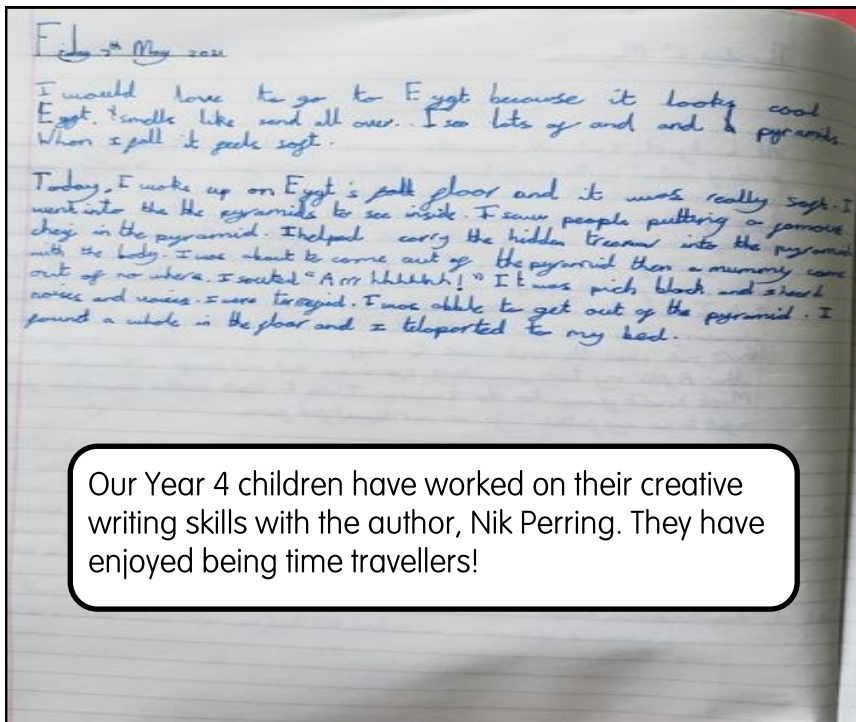 Friday 7th May 2021
I would love to go to Eygt because it looks cool
Eygt. smells like sand all over. I see lots of and and pyramids.
When I fall it feels soft.
Today, I woke up on Eygt's floor and it was really soft. I
went into the the pyramids to see inside. I saw people puttering a famous
in the pyramid. I helped carry the hidden into the pyramid
with the body. I was about to come out of the pyramid then a mummy came
out of no where. I souted "Arrr hhhhhh!" It was pich black and I heard
noises and voices. I was . I was able to get out of the pyramid. I
found a whole in the floor and I teloported to my bed.
Our Year 4 children have worked on their creative
writing skills with the author, Nik Perring. They have
enjoyed being time travellers!